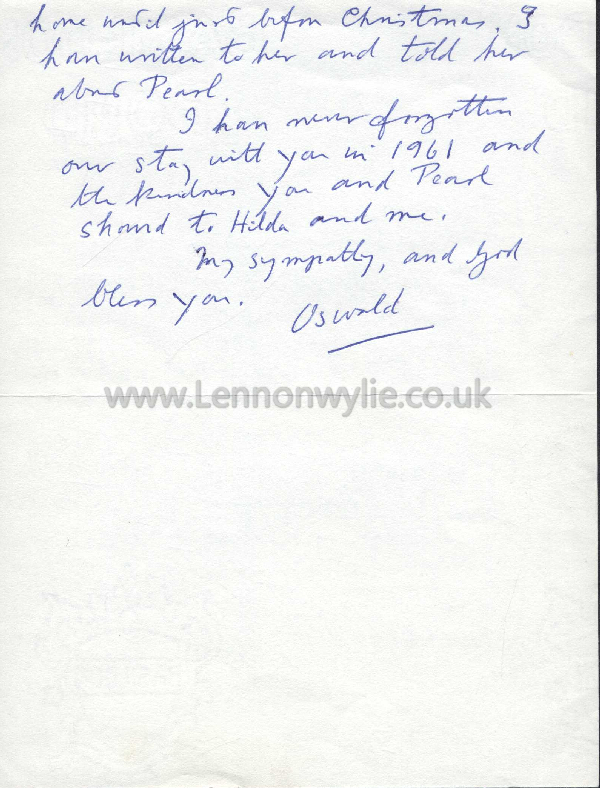 home until just before Christmas. I
have written to her and told her
about Pearl.
I have never forgotten
our stay with you in 1961 and
the kindness you and Pearl
showed to Hilda and me.
My sympathy, and God
bless you.
Oswald
www.Lennonwylie.co.uk